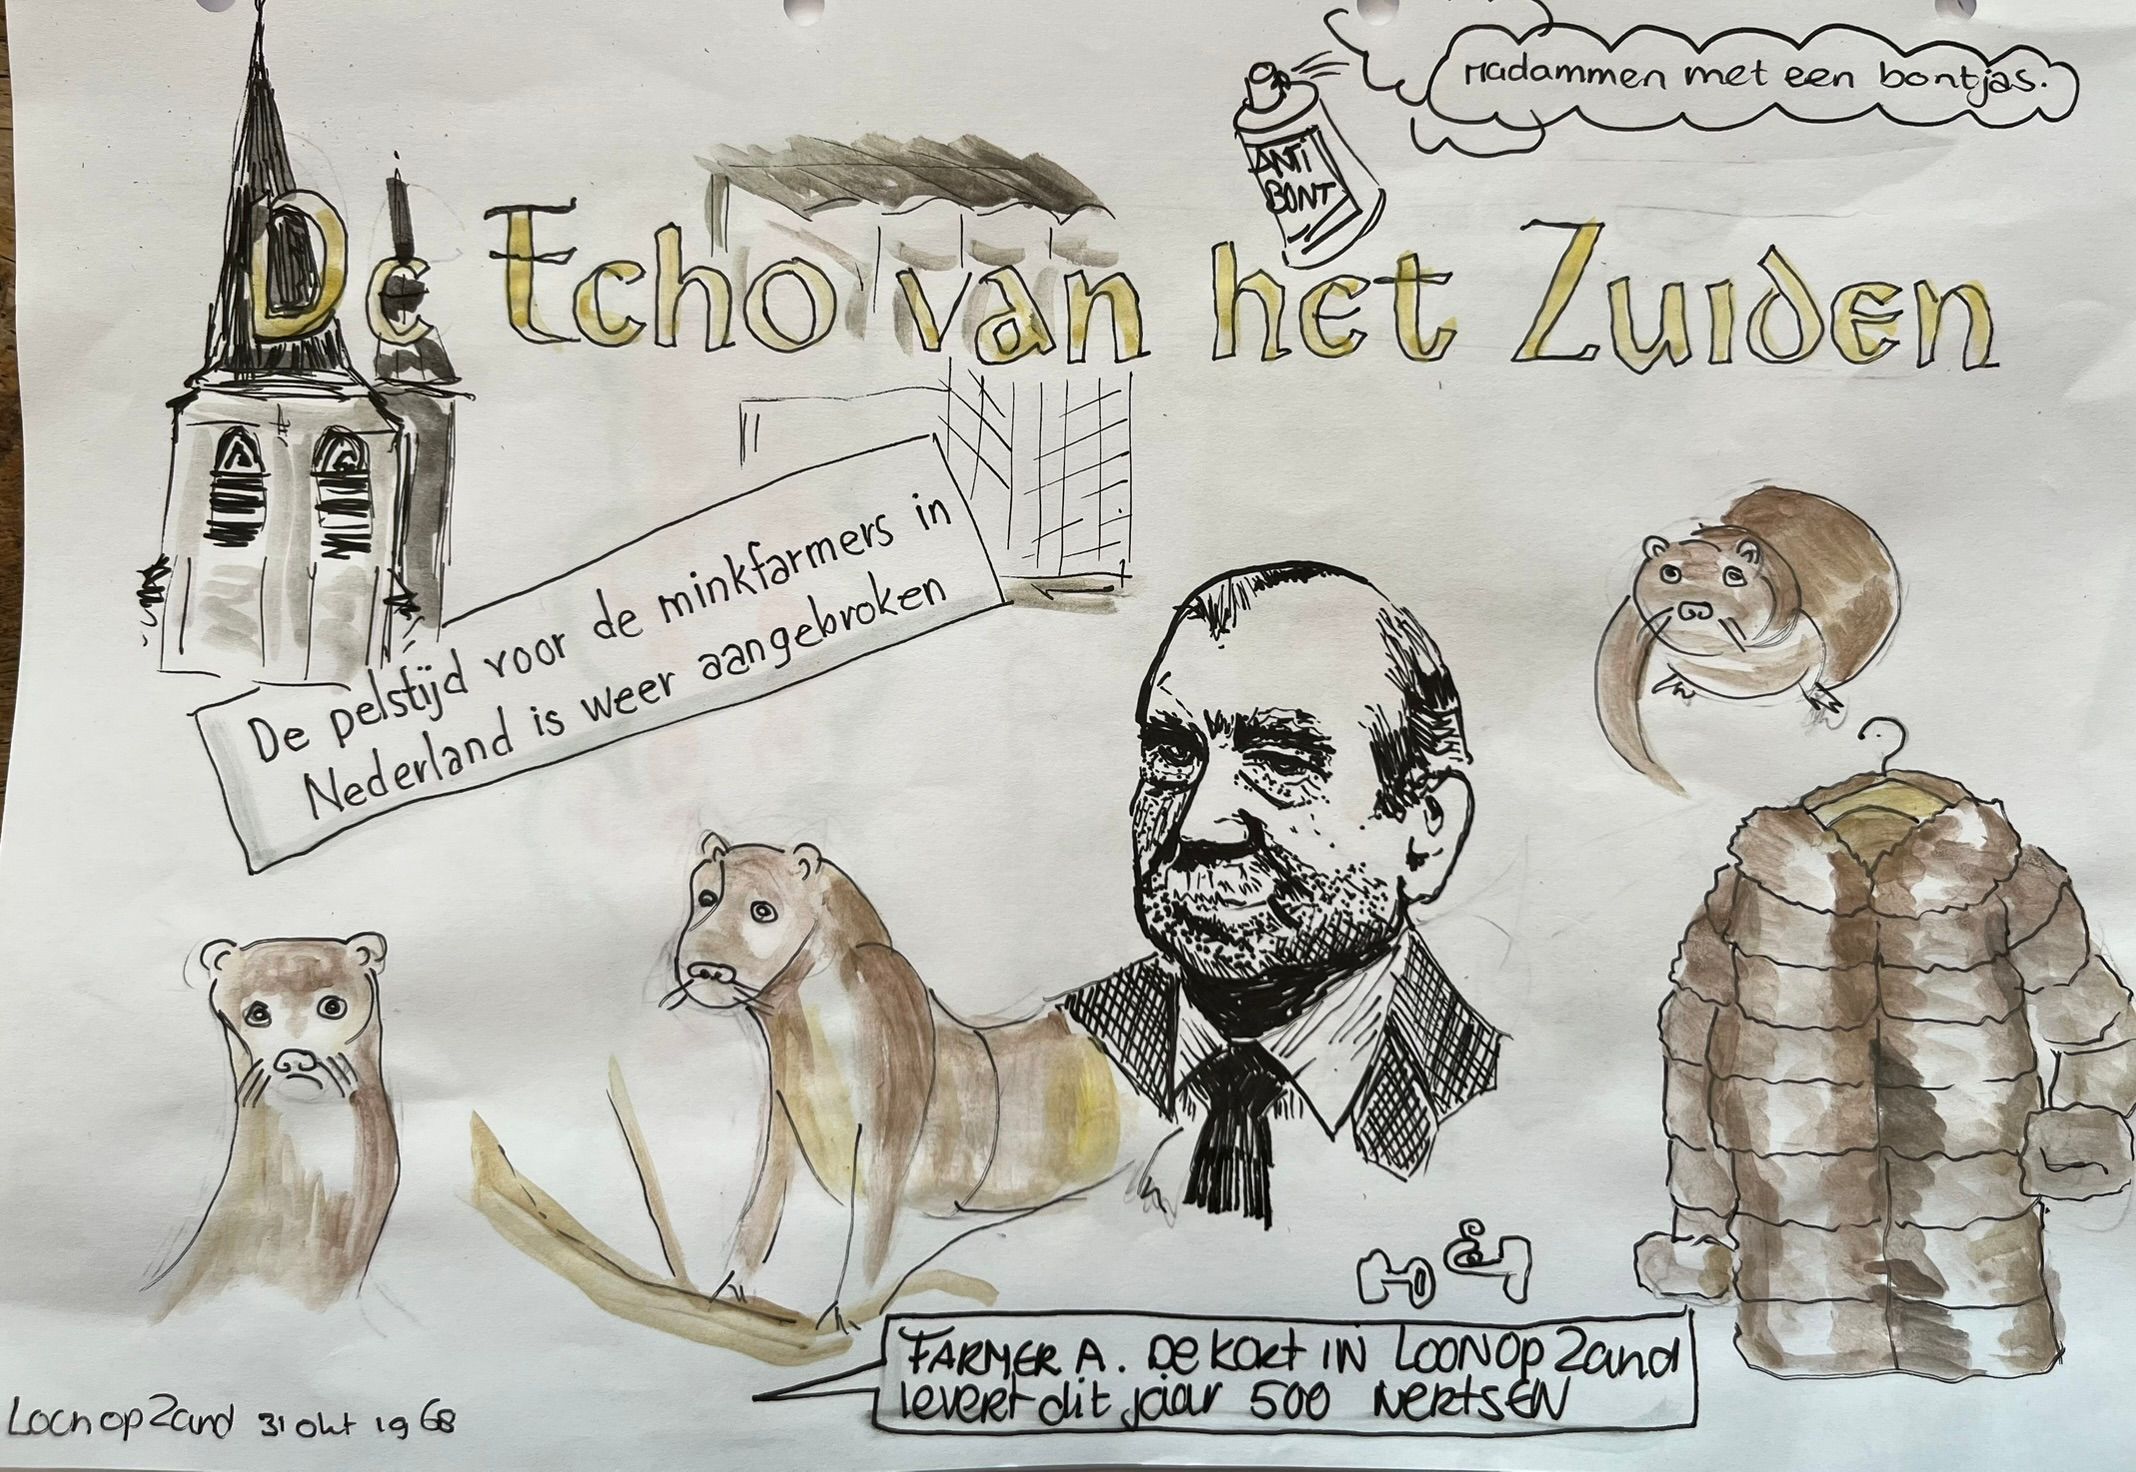 Madammen met een bontjas.
ANTI
BONT
De Echo van het Zuiden
De pelstijd voor de minkfarmers in
Nederland is weer aangebroken
FARMER A. De Kort IN LOON Op Zand
levert dit jaar 500 NERTSEN
Loon op Zand 31 okt 1968